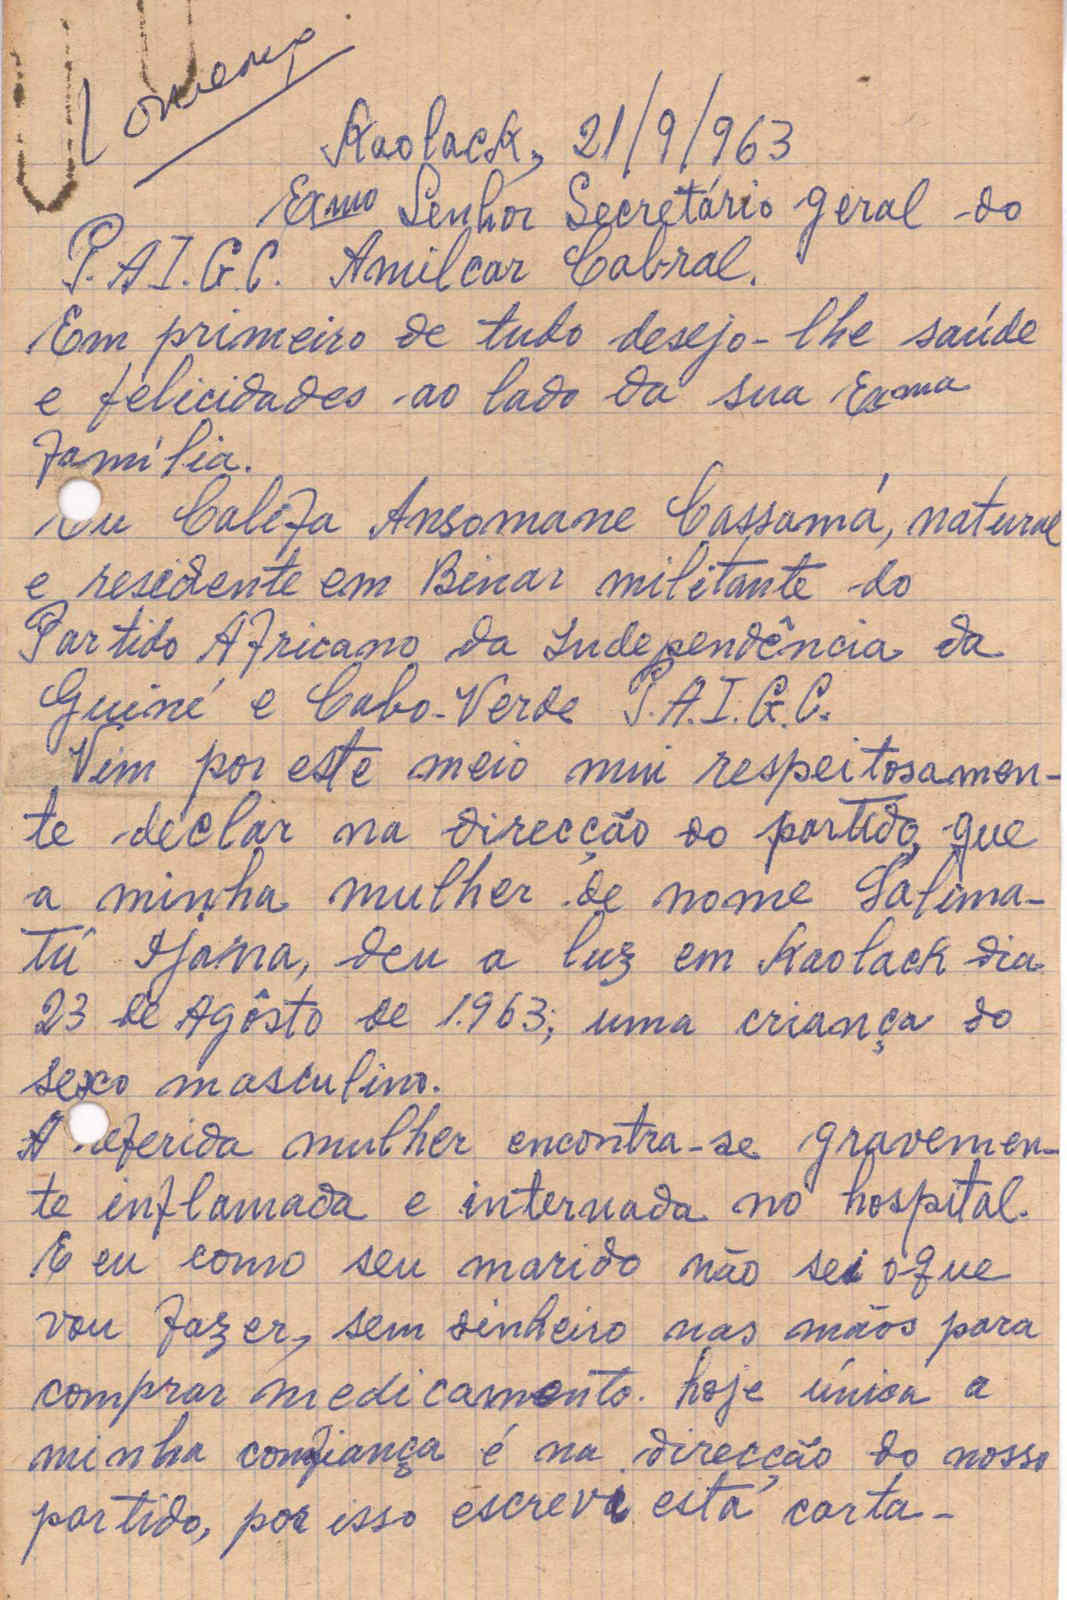 Kaolack, 21/9/963
Exmo Senhor Secretário geral do
P.A.I.G.C. Amilcar Cabral.
Em primeiro de tudo desejo-lhe saúde
e felicidades ao lado da sua Exma
família.
Eu Califa Ansomane Cassamá, natural
e residente em Binar militante do
Partido Africano da Independência da
Guiné e Cabo-Verde P.A.I.G.C.
Vim por este meio mui respeitosamen-
te declar na direcção do partido, que
a minha mulher de nome Salima-
tú Djama, deu a luz em Kaolack dia
23 de Agôsto de 1.963; uma criança do
sexo masculino.
A referida mulher encontra-se gravemen-
te inflamada e internada no hospital.
E eu como seu marido não sei oque
vou fazer, sem dinheiro nas mãos para
comprar medicamento. hoje única a
minha confiança é na direcção do nosso
partido, por isso escrevi está carta-